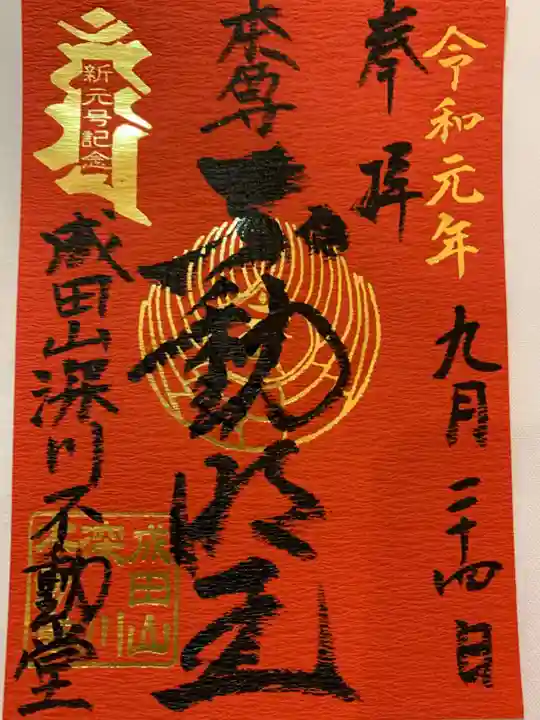 令和元年 九月二十四日
奉拝
本尊 不動明王
新元号記念
成田山深川不動堂
成田山
深川